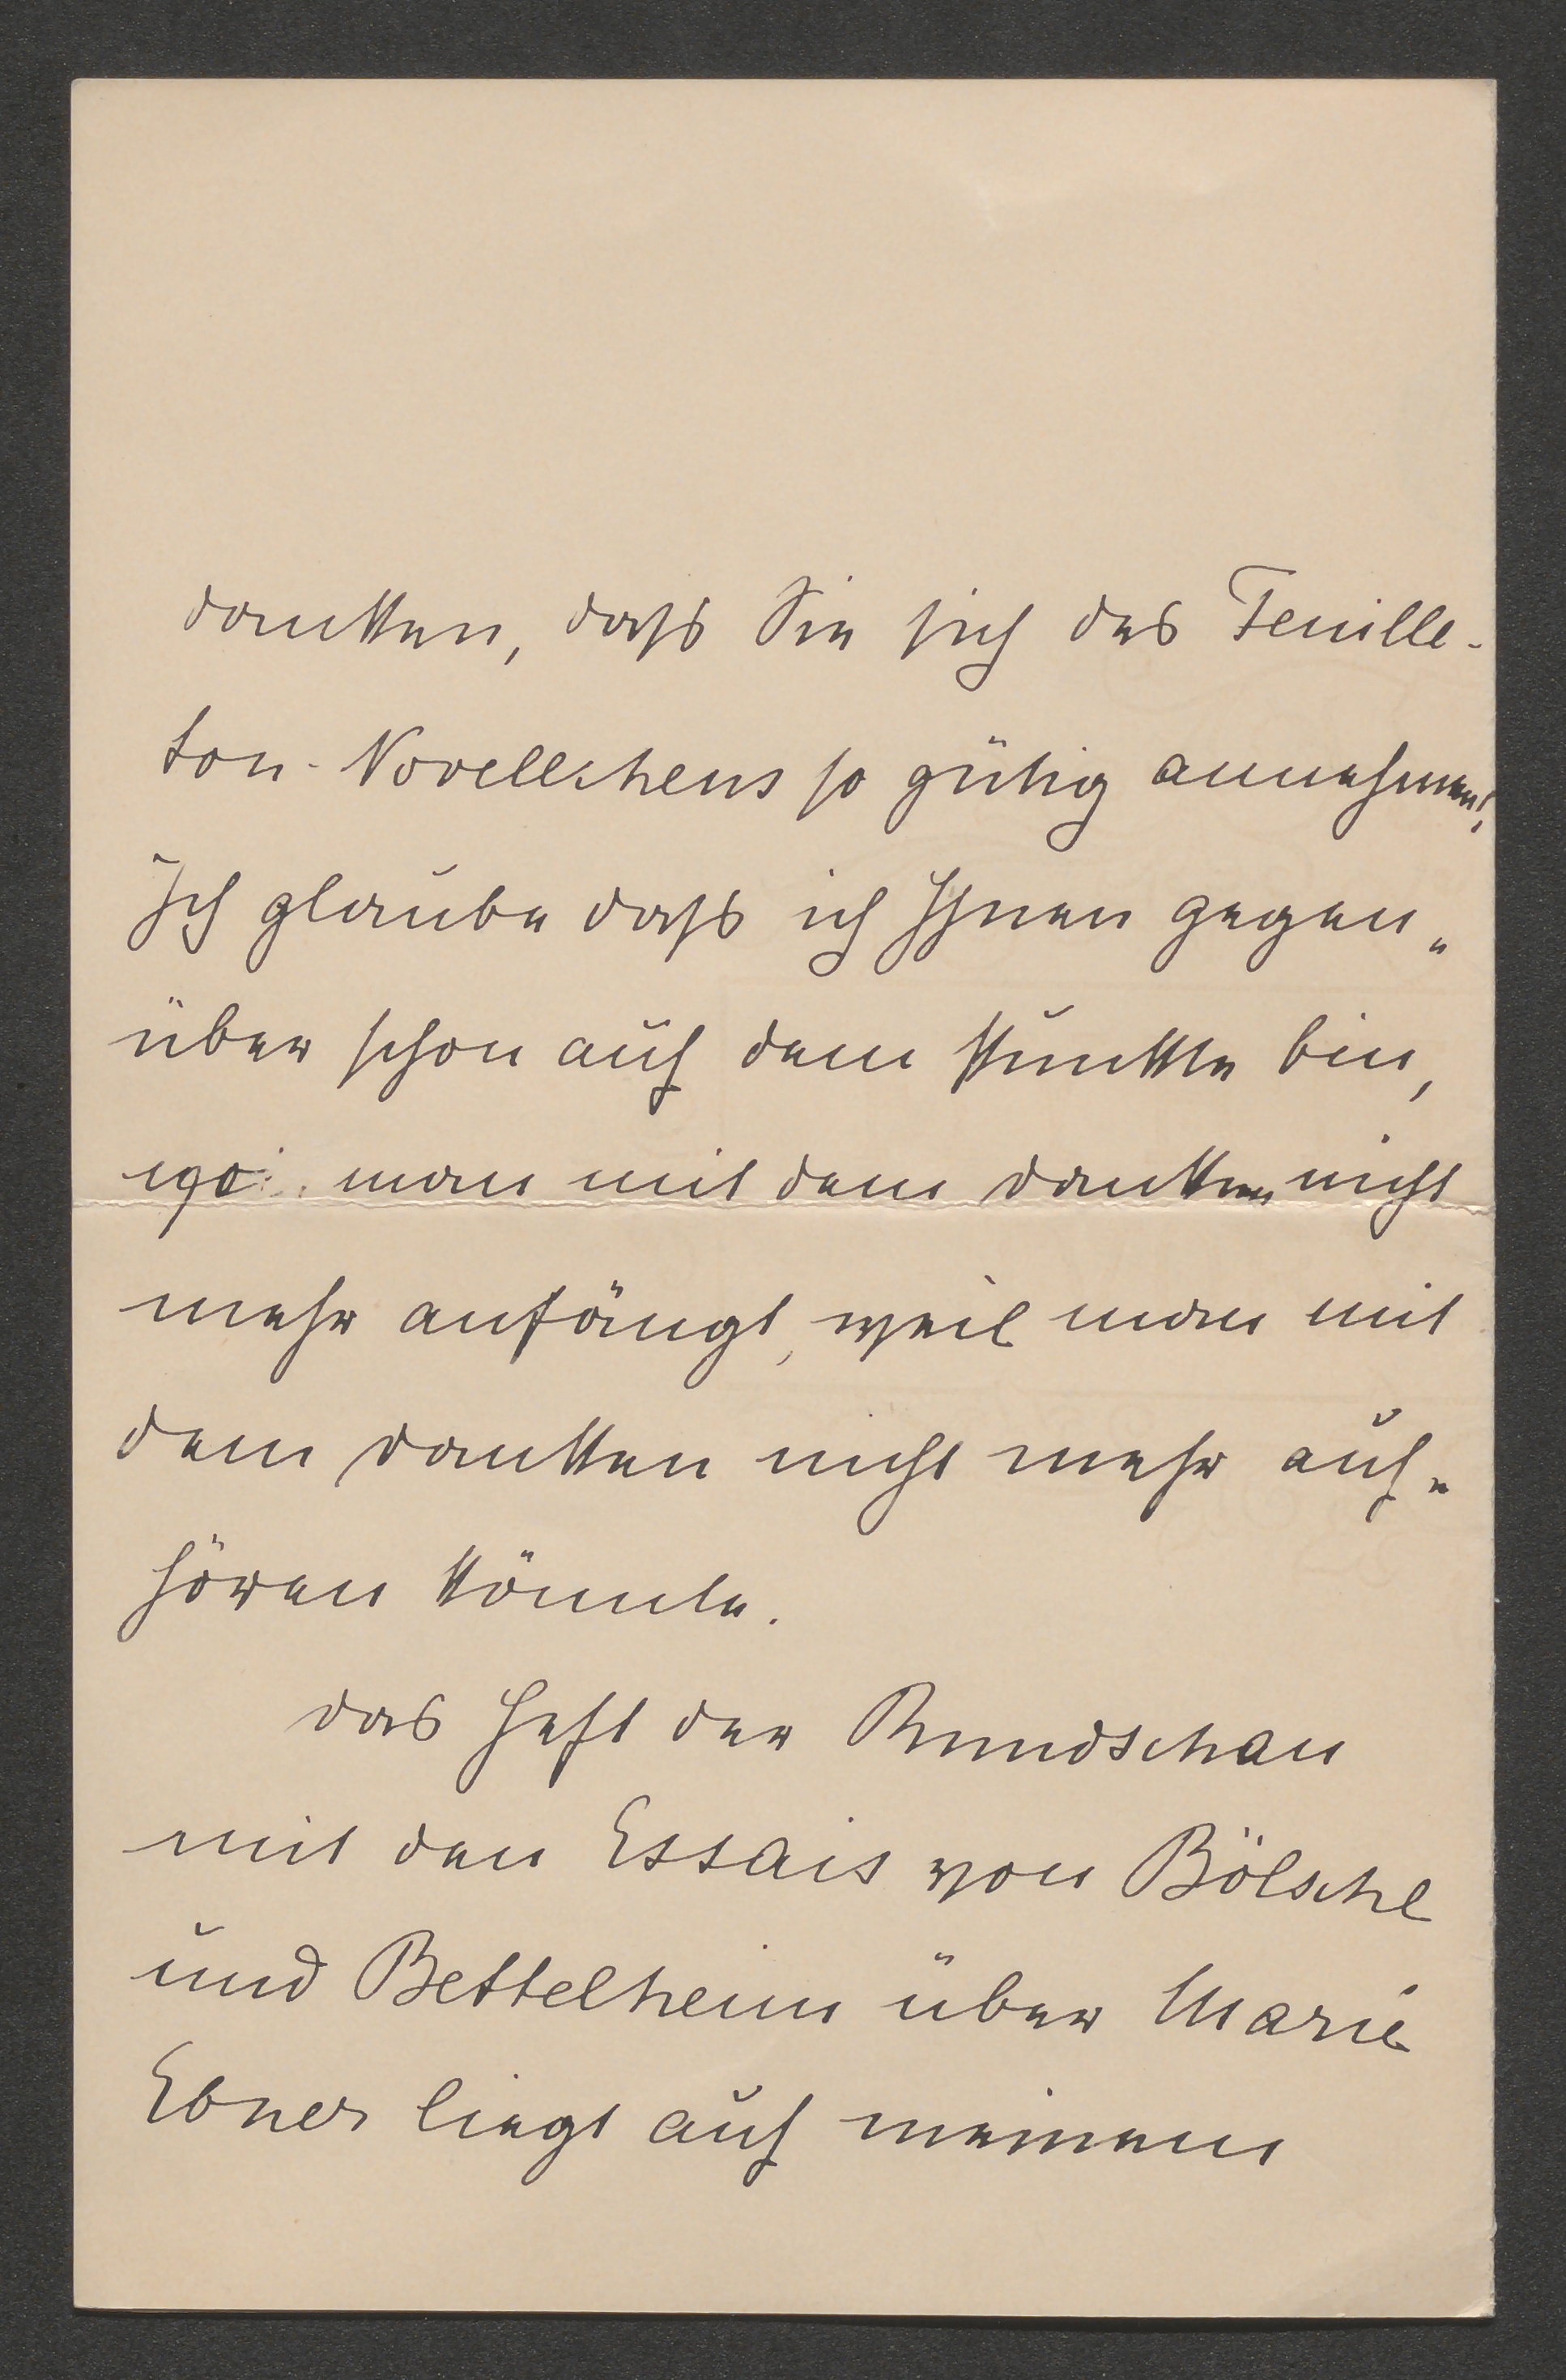 danken, daß Sie sich des Feuille-
ton-Novellchens so gütig annehmen!
Ich glaube daß ich Ihnen gegen-
über schon auf dem Punkte bin,
wo man mit dem danken nicht
mehr anfängt, weil man mit
dem danken nicht mehr auf-
hören könnte.
das Heft der Rundschau
mit den Essais von Bölsche
und Bettelheim über Marie
Ebner liegt auf meinem